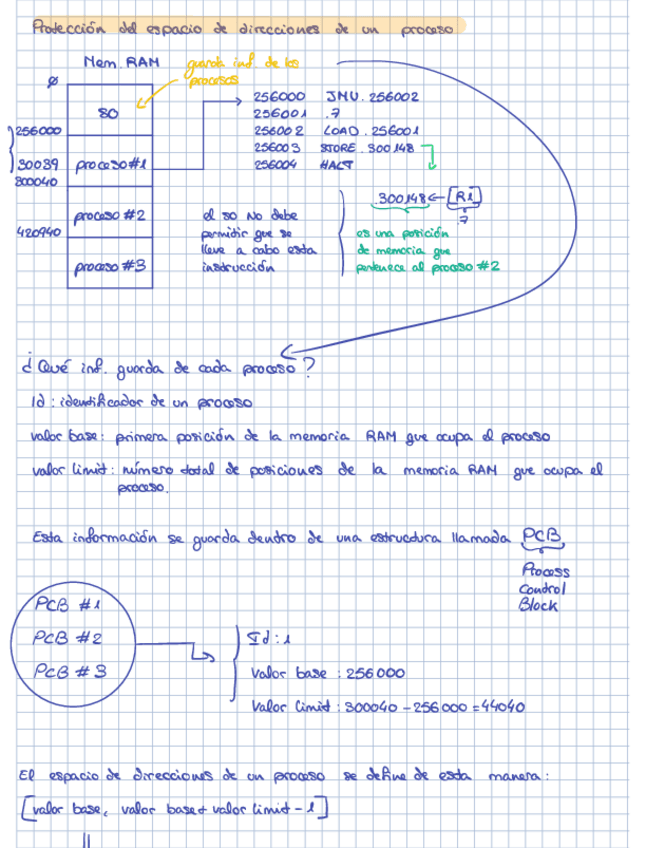 Protección del espacio de direcciones de un proceso
Mem. RAM
guarda inf. de los
procesos
0
SO
256000
30039
300040
420940
proceso #1
proceso #2
proceso #3
256000 JMV .256002
256001 .7
256002 LOAD .256001
256003 STORE .300148
256004 HALT
.300148 ← [R1]
7
el SO NO debe
permitir que se
lleve a cabo esta
instrucción
es una posición
de memoria que
pertenece al proceso #2
¿Qué inf. guarda de cada proceso?
Id : identificador de un proceso
valor base: primera posición de la memoria RAM que ocupa el proceso
valor limit: número total de posiciones de la memoria RAM que ocupa el
proceso.
Esta información se guarda dentro de una estructura llamada PCB
Process
Control
Block
PCB #1
PCB #2
PCB #3
Id : 1
Valor base : 256000
Valor limit : 300040 - 256000 = 44040
El espacio de direcciones de un proceso se define de esta manera:
[valor base, valor base + valor limit - 1]